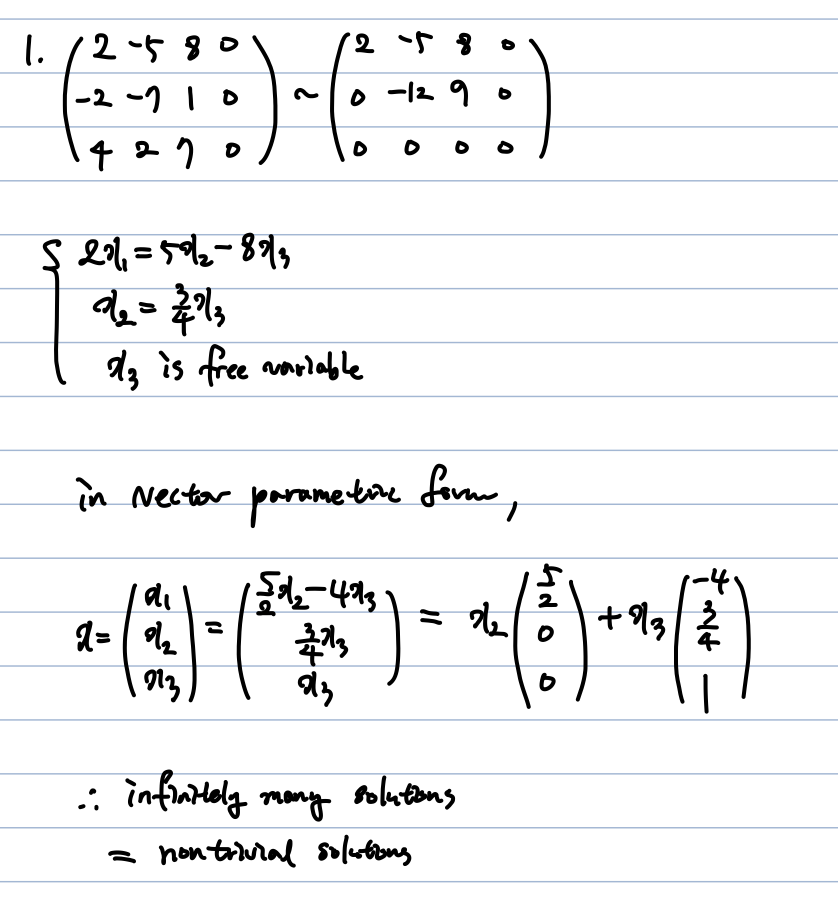 1. (2 -5 8 0 ~ (2 -5 8 0
-2 -7 1 0 0 -12 9 0
4 2 7 0) 0 0 0 0)
{ 2x₁ = 5x₂ - 8x₃
x₂ = 3/4 x₃
x₃ is free variable
in vector parametric form,
x = (x₁ x₂ x₃) = (5/2 x₂ - 4x₃ 3/4 x₃ x₃) = x₂ (5/2 0 0) + x₃ (-4 3/4 1)
∴ infinitely many solutions
= nontrivial solutions